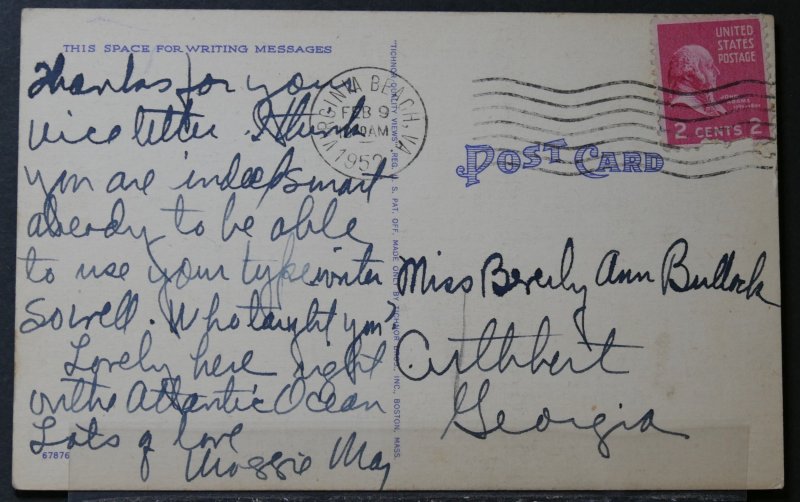 THIS SPACE FOR WRITING MESSAGES
Thanks for your
nice letter. I think
you are indeed smart
already to be able
to use your typewriter
so well. Who taught you?
Lovely here right
on the Atlantic Ocean
Lots of love
Maggie May
67876
"TICHNOR QUALITY VIEWS," REG. U. S. PAT. OFF. MADE ONLY BY TICHNOR BROS., INC., BOSTON, MASS.
VIRGINIA BEACH, VA.
FEB 9
AM
1952
UNITED
STATES
POSTAGE
JOHN
ADAMS
2 CENTS 2
POST CARD
Miss Beverly Ann Bullock
Cuthbert
Georgia